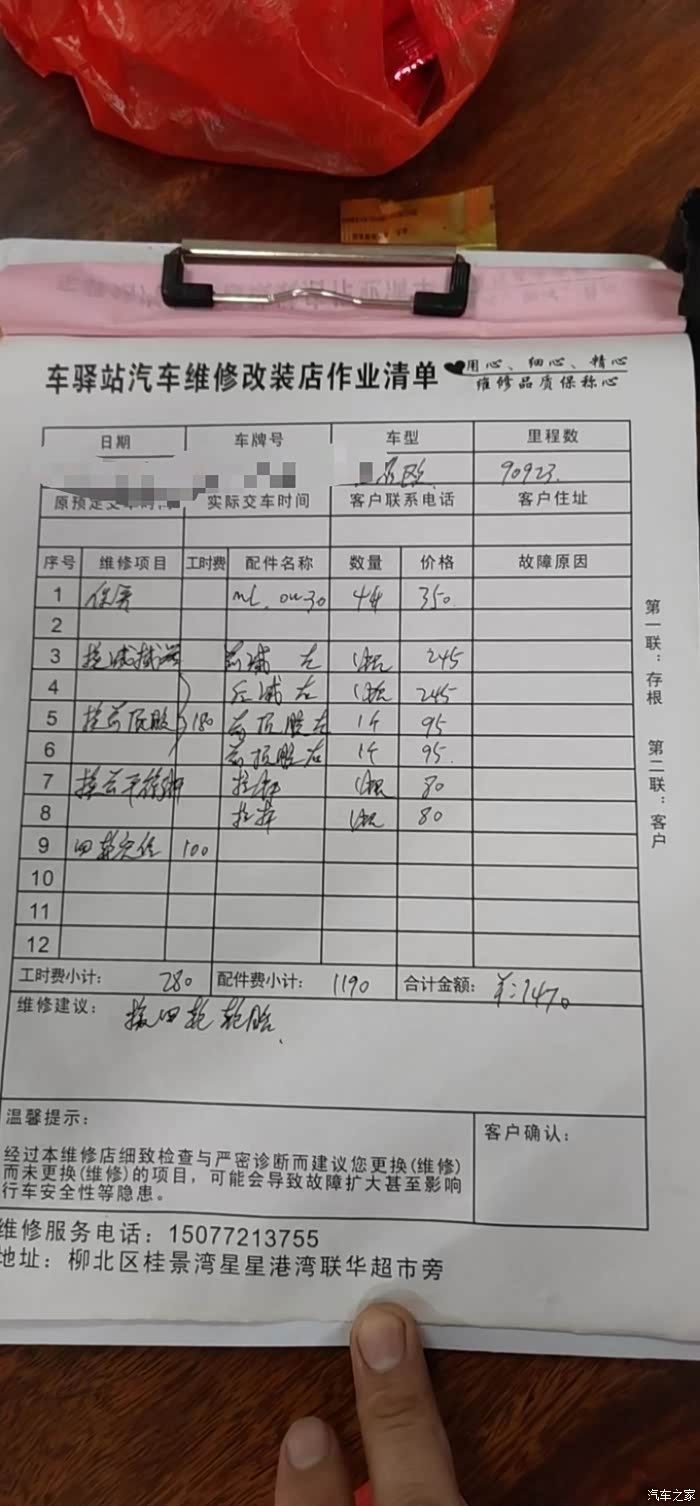 车驿站汽车维修改装店作业清单 用心、细心、精心
维修品质保称心
日期 车牌号 车型 里程数
90923
原预定交车时 实际交车时间 客户联系电话 客户住址
序号 维修项目 工时费 配件名称 数量 价格 故障原因
1 保养 0W-30 350
2
3 245
4 左 245
5 180 左 1个 95
6 右 1个 95
7 80
8 80
9 四轮定位 100
10
11
12
第一联：存根
第二联：客户
工时费小计： 280 配件费小计： 1190 合计金额： 1470
维修建议： 换四轮轮胎
温馨提示：
客户确认：
经过本维修店细致检查与严密诊断而建议您更换(维修)
而未更换(维修)的项目，可能会导致故障扩大甚至影响
行车安全性等隐患。
维修服务电话：15077213755
地址：柳北区桂景湾星星港湾联华超市旁
汽车之家